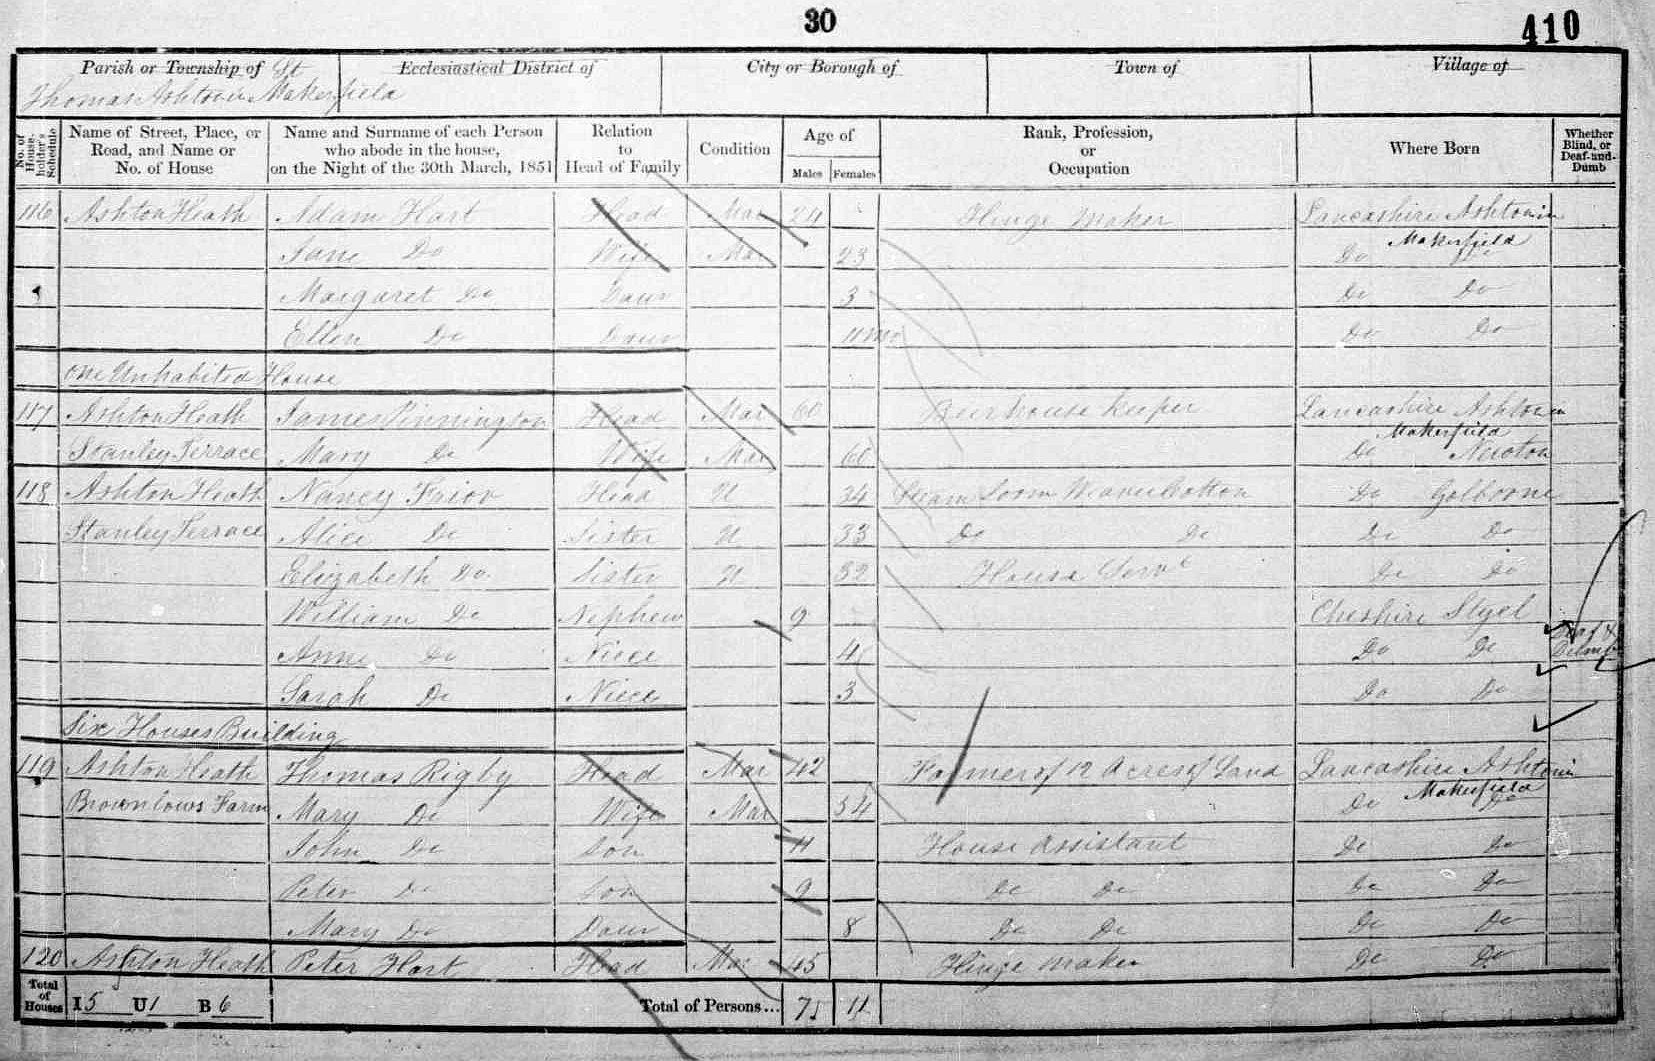 30
410
Parish or Township of St
Ecclesiastical District of
City or Borough of
Town of
Village of
Thomas Ashton in Makerfield
No. of House-holder's Schedule
Name of Street, Place, or Road, and Name or No. of House
Name and Surname of each Person who abode in the house, on the Night of the 30th March, 1851
Relation to Head of Family
Condition
Age of
Males
Females
Rank, Profession, or Occupation
Where Born
Whether Blind, or Deaf-and-Dumb
116 Ashton Heath Adam Hart Head Mar 24 Hinge Maker Lancashire Ashton in Makerfield
Jane Do Wife Mar 23 Do Do
Margaret Do Daur 3 Do Do
Ellen Do Daur 11 mo Do Do
One Unhabited House
117 Ashton Heath James Pinnington Head Mar 60 Beerhouse Keeper Lancashire Ashton in Makerfield
Stanley Terrace Mary Do Wife Mar 60 Do Newton
118 Ashton Heath Nancy Prior Head U 34 Steam Loom Weaver Cotton Do Golborne
Stanley Terrace Alice Do Sister U 33 Do Do Do Do
Elizabeth Do Sister U 32 House Servt Do Do
William Do Nephew 9 Cheshire Styel
Anne Do Niece 4 Do Do Deaf & Dumb
Sarah Do Niece 3 Do Do
Six Houses Building
119 Ashton Heath Thomas Rigby Head Mar 42 Farmer of 12 Acres of Land Lancashire Ashton in Makerfield
Brownlows Farm Mary Do Wife Mar 34 Do Do
John Do Son 11 House Assistant Do Do
Peter Do Son 9 Do Do Do Do
Mary Do Daur 8 Do Do Do Do
120 Ashton Heath Peter Hart Head Mar 45 Hinge Maker Do Do
Total of Houses I 5 U 1 B 6 Total of Persons... 11